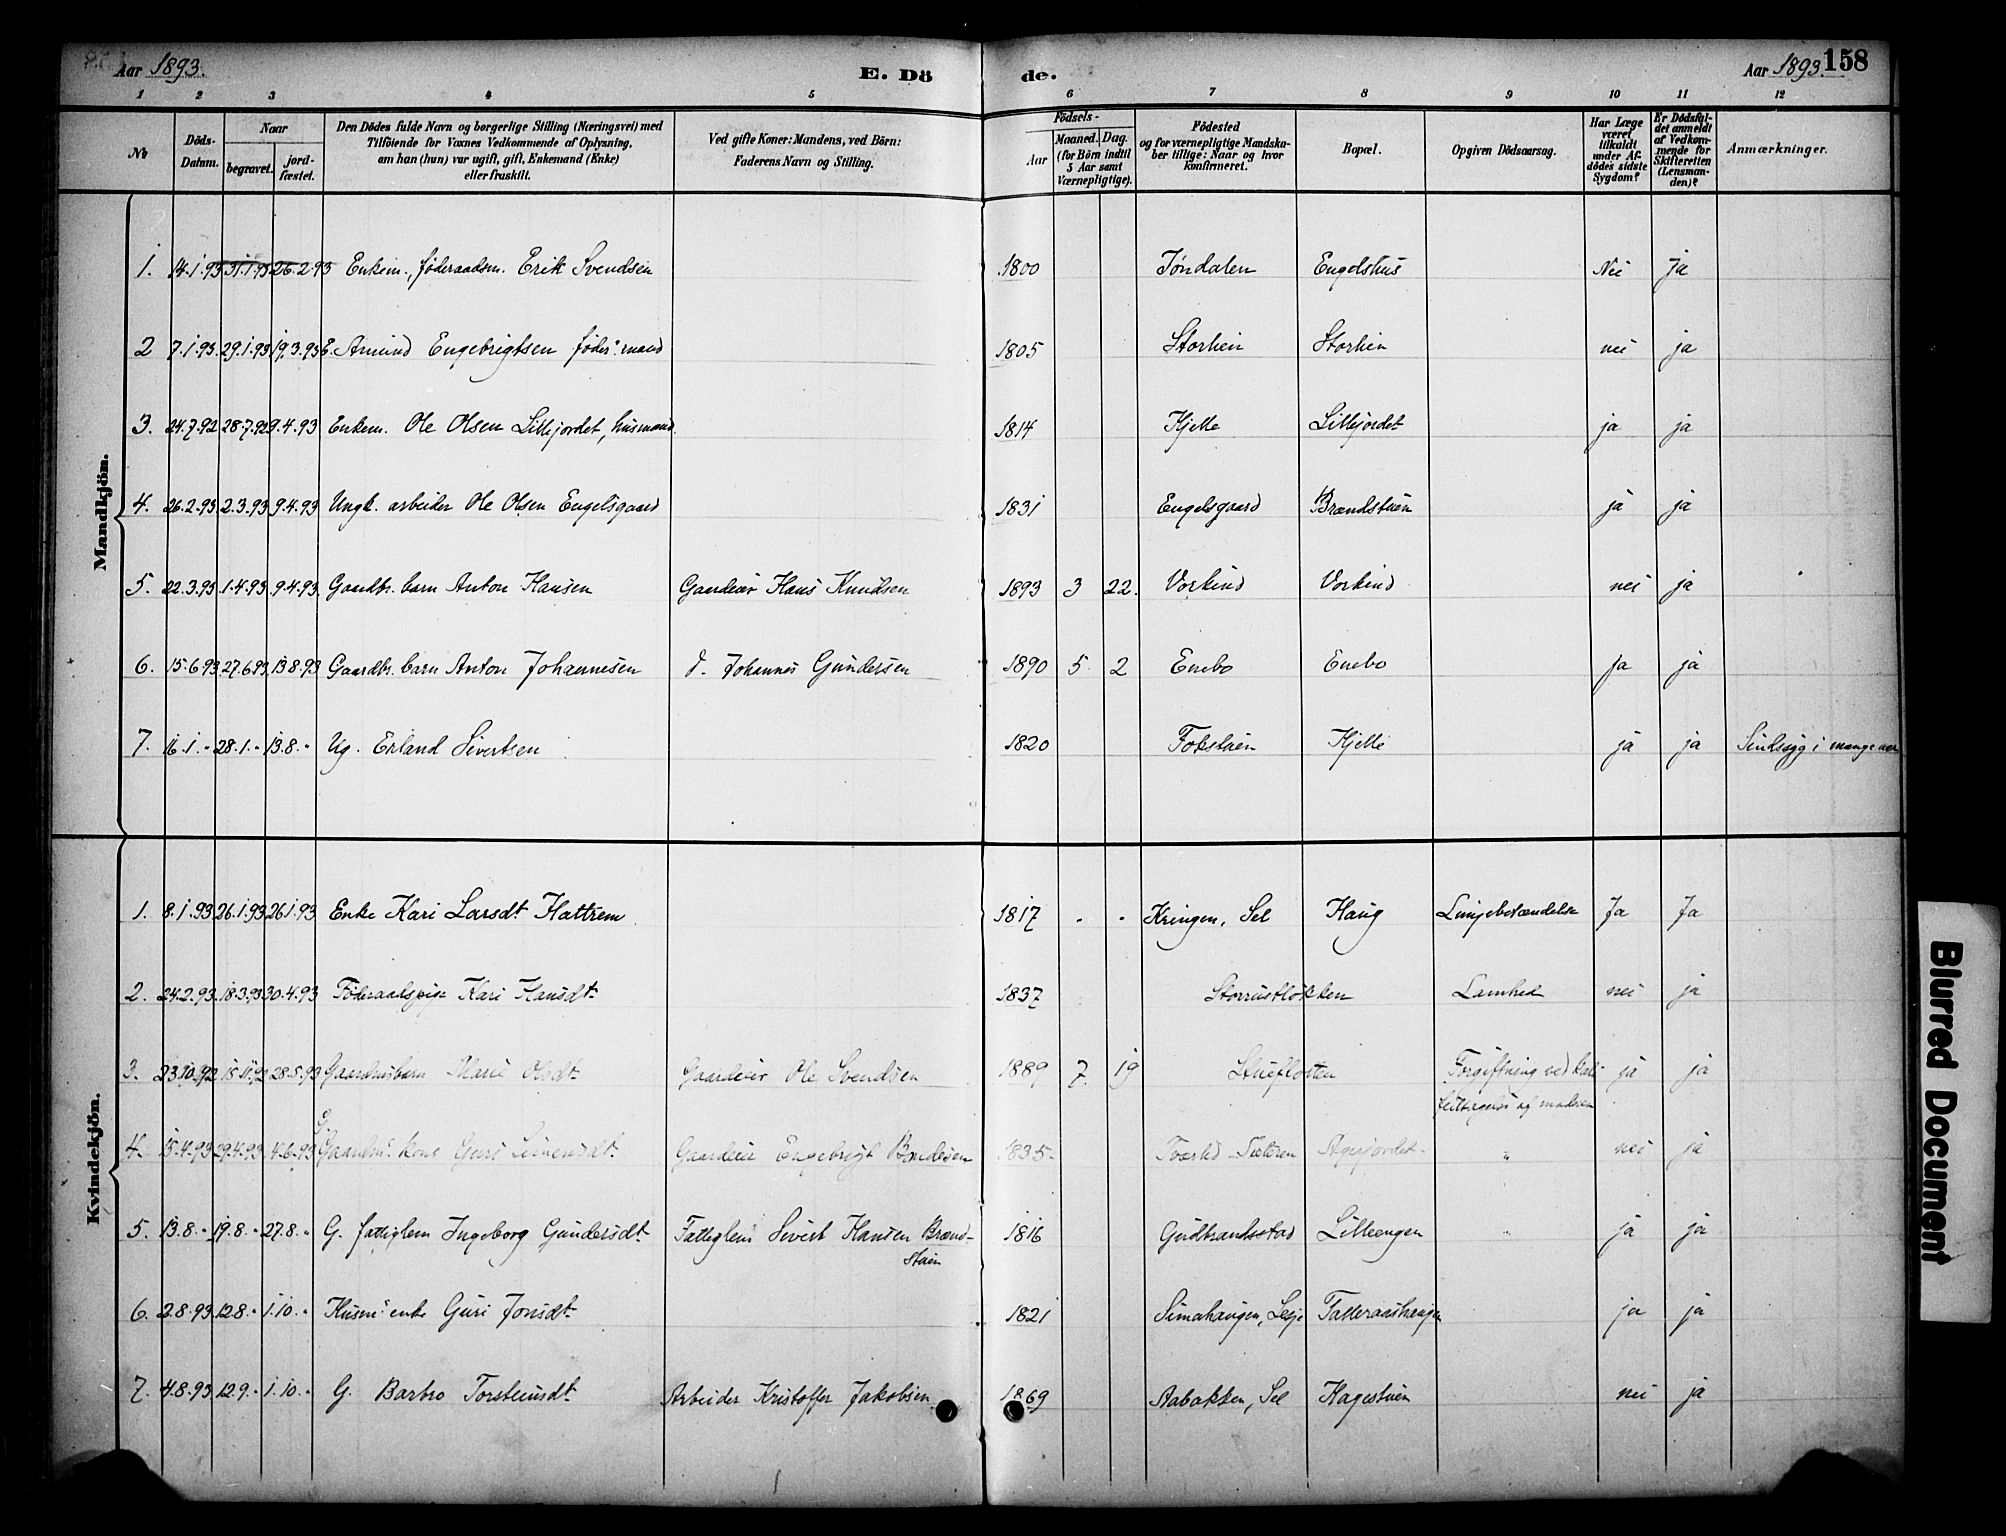 Aar 1893.
E. Dö
de.
Aar 1893.
158
1 2 3 4 5 6 7 8 9 10 11 12
№
Döds-Datum.
Naar
begravet.
jord-fæstet.
Den Dödes fulde Navn og borgerlige Stilling (Næringsvei) med
Tilföiende for Voxnes Vedkommende af Oplysning,
om han (hun) var ugift, gift, Enkemand (Enke)
eller fraskilt.
Ved gifte Koner: Mandens, ved Börn:
Faderens Navn og Stilling.
Födsels-
Aar
Maaned. Dag.
(for Börn indtil
5 Aar samt
Værnepligtige).
Födested
og for værnepligtige Mandska-
ber tillige: Naar og hvor
konfirmeret.
Bopæl.
Opgiven Dödsaarsag.
Har Læge
været
tilkaldt
under Af-
dödes sidste
Sygdom?
Er Dödsfal-
det anmeldt
af Vedkom-
mende for
Skifteretten
(Lensman-
den)?
Anmærkninger.
Mandkjön.
1. 14.1.93 31.1.93 26.2.93 Enkem., föderaadsm. Erik Svendsen 1800 Jöndalen Engelshus Nei Ja
2 7.1.93 29.1.93 19.3.93 E. Amund Engebrigtsen föder. mand 1805 Storlien Storlien nei ja
3. 24.7.92 28.7.92 9.4.93 Enkem. Ole Olsen Lillejordet, husmand. 1814 Kjelle Lillejordet ja ja
4. 26.2.93 2.3.93 9.4.93 Ungk. arbeider Ole Olsen Engelsgaard 1831 Engelsgaard Brændstuen ja ja
5. 22.3.93 1.4.93 9.4.93 Gaardbr. barn Anton Hansen Gaardeier Hans Knudsen 1893 3 22. Vorkind Vorkind nei ja
6. 15.6.93 27.6.93 13.8.93 Gaardbr. barn Anton Johannesen d. Johannes Gundersen 1890 5. 2 Enebo Enebo Ja ja
7. 16.1.„ 28.1.„ 13.8.„ Ug. Erland Sivertsen 1820 Fokstuen Kjelle ja ja Sindssyg i mange aar
Kvindekjön.
1. 8.1.93 26.1.93 26.1.93 Enke Kari Larsdt Hattrem 1817 Kringen, Sel Haug Lungebetændelse Ja Ja
2. 24.2.93 18.3.93 30.4.93 Föderaadspige Kari Hansdt 1837 Storrustlökken Lamhed nei ja
3. 23.10.92 15.11.92 28.5.93 Gaardmbarn Marie Olsdt Gaardeier Ole Svendsen 1889 7. 19 Stueflotten Forgiftning ved
af moderen ja ja
4. 15.4.93 29.4.93 4.6.93 G. Gaardm. kone Guri Simensdt Gaardeier Engebrigt Bondesen 1835 Sæteren „ nei ja
5. 13.8.„ 19.8.„ 27.8.„ G. fattiglem Ingeborg Gundersdt Fattiglem Sivert Hansen Brænd-
stuen 1816 Gudbrandsstad Lilleengen „ ja ja
6. 2.8.93 12.8.„ 1.10.„ Husm. enke Guri Jonsdt 1821 Simahaugen, Lesje Talleraashaugen ja ja
7. 4.8.93 12.9.„ 1.10.„ G. Barbro Torsteinsdt Arbeider Kristoffer Jakobsen 1869 Aabakken, Sel Hagestuen nei ja
Blurred Document